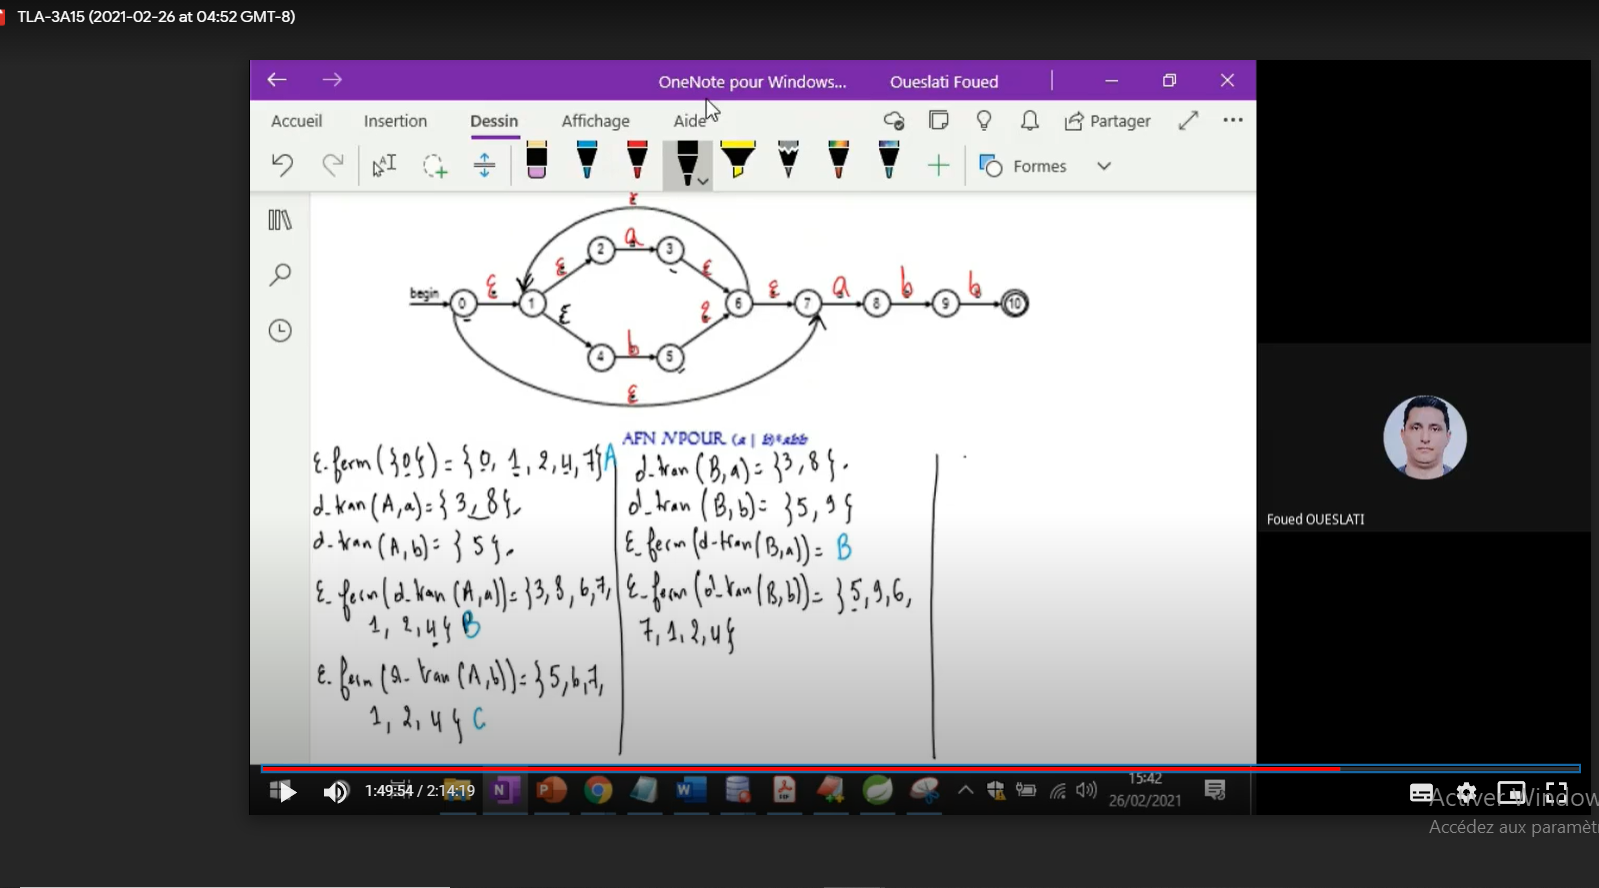 TLA-3A15 (2021-02-26 at 04:52 GMT-8)
OneNote pour Windows... Oueslati Foued
Accueil Insertion Dessin Affichage Aide Partager
Formes
ε
a
2 3
ε ε
begin 0 ε 1 6 ε 7 a 8 b 9 b 10
ε ε
4 b 5
ε
AFN N POUR (a | b)*abb
ε-ferm({0}) = {0, 1, 2, 4, 7} A
d-tran(A,a) = {3, 8}.
d-tran(A,b) = {5}.
ε-ferm(d-tran(A,a)) = {3, 8, 6, 7,
1, 2, 4} B
ε-ferm(d-tran(A,b)) = {5, 6, 7,
1, 2, 4} C
d-tran(B,a) = {3, 8}.
d-tran(B,b) = {5, 9}
ε-ferm(d-tran(B,a)) = B
ε-ferm(d-tran(B,b)) = {5, 9, 6,
7, 1, 2, 4}
Foued OUESLATI
1:49:54 / 2:14:19
15:42
26/02/2021
Activer Window
Accédez aux paramèt